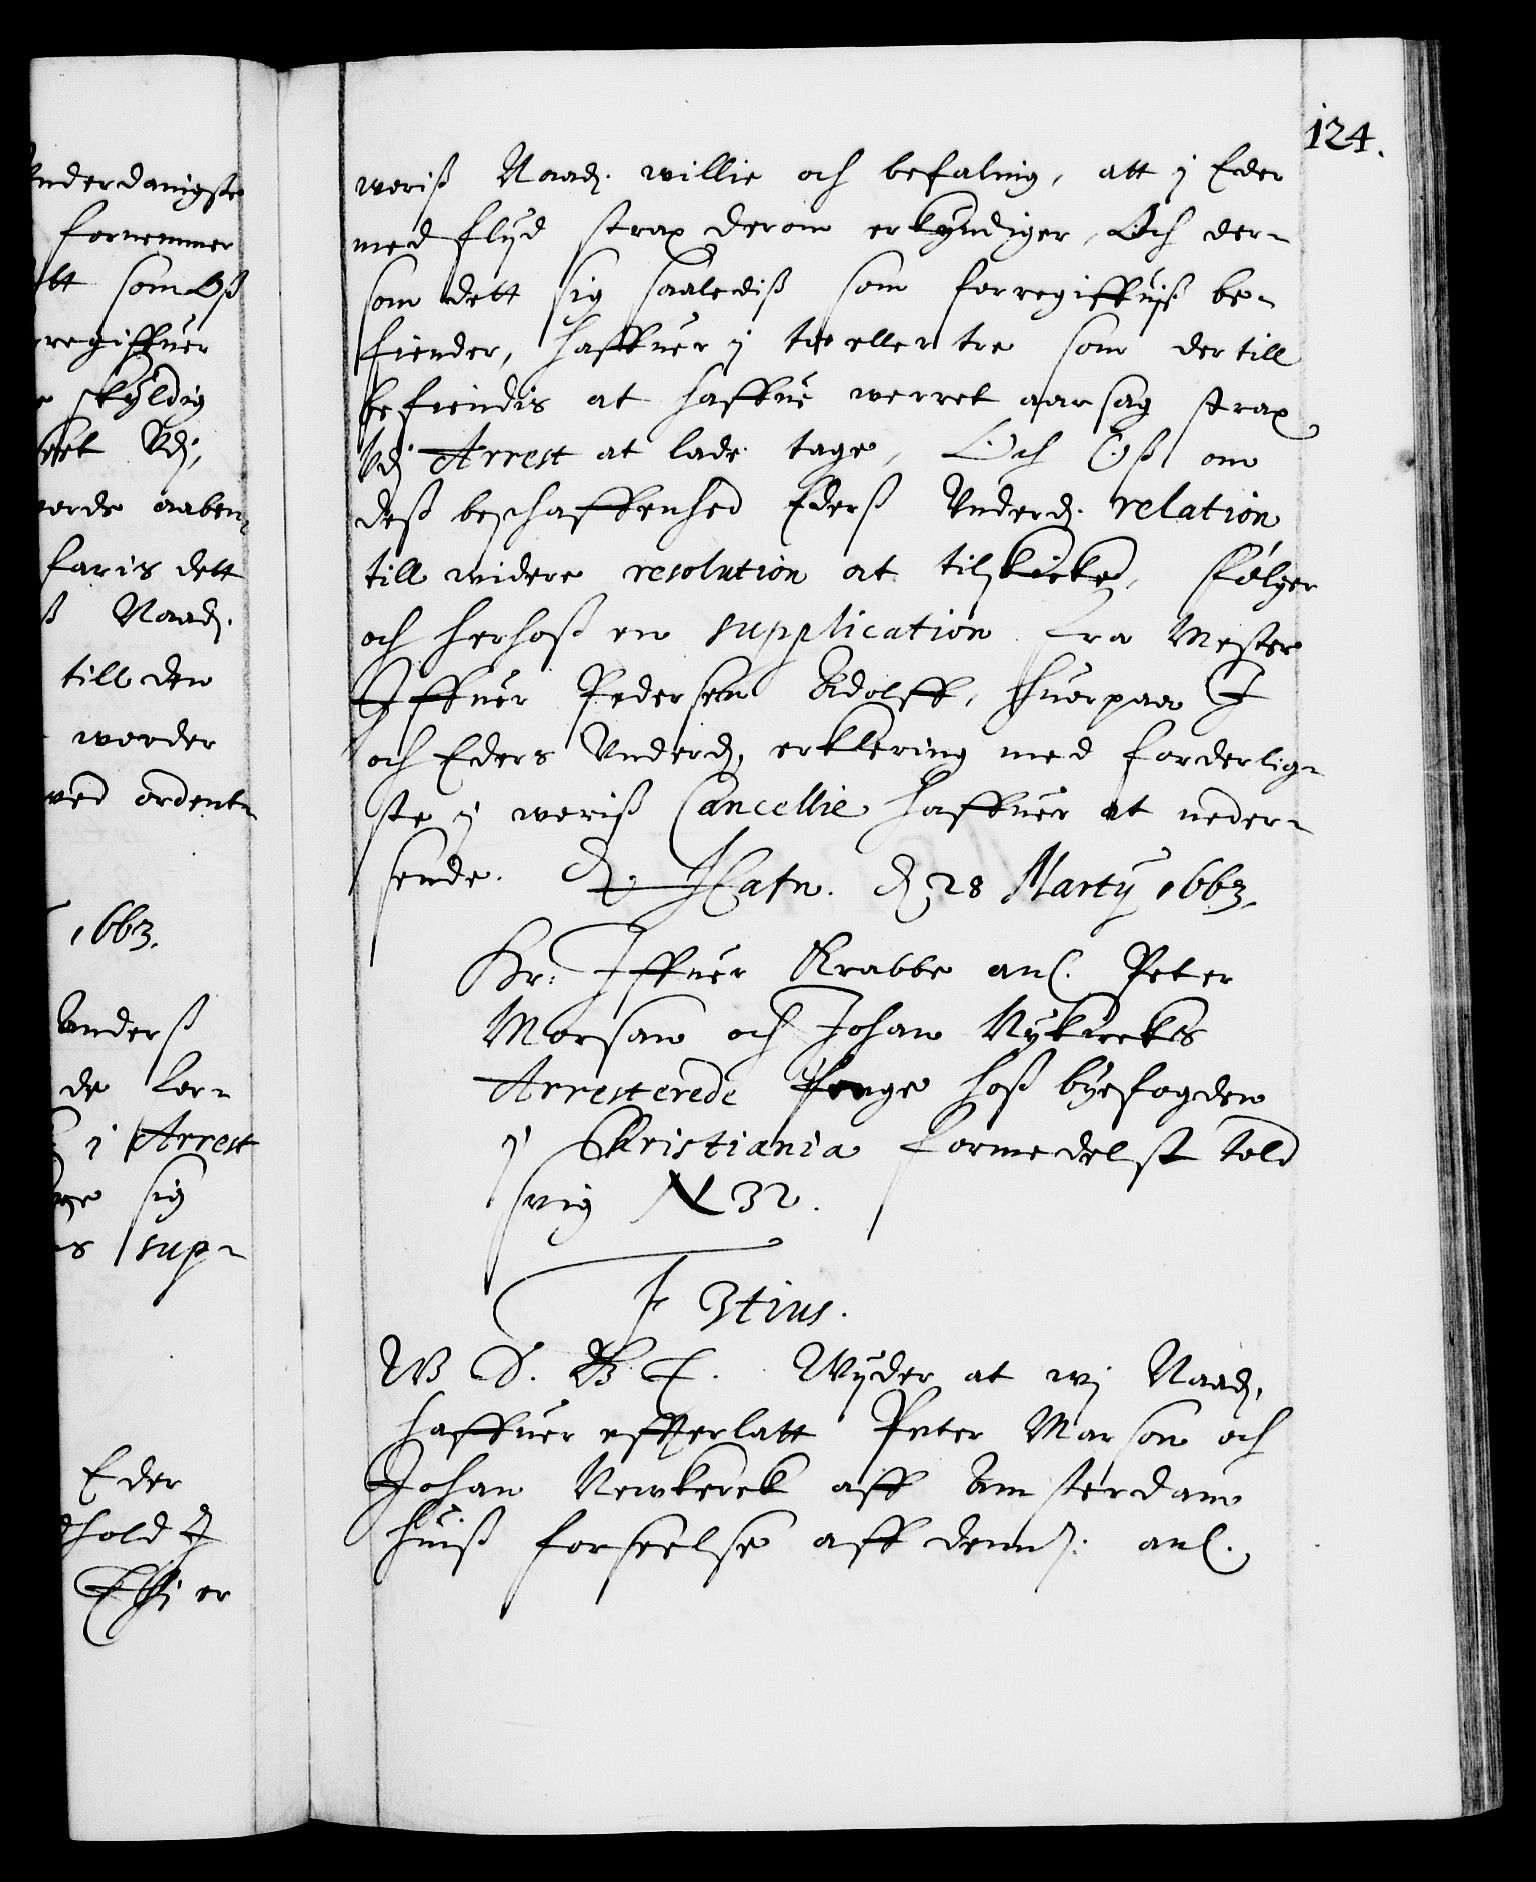 124.
nderdanigste
fornemmer
tt som Oß
regiffuer
skyldig
Vdj,
aaben-
faris dett
ß Naad.
till den
worder
ved ordent-
1663.
Anderß
de for-
j Arrest
sig
sup-
Eder
hold J
er
woriß Naad. willie och befaling, att j Eder
med flyd strax derom erkyndiger, Och der-
som dett sig saalediß som forregiffuiß be-
finder, haffuer j toe eller tre som dertill
befindis at haffue werret aarsag strax
Vdj Arrest at lade tage, Och Oß om
deß beschaffenhed Ederß Vnderd. relation
till widere resolution at tilskicke, Følger
och herhoß en supplication fra Mester
Iffuer Pedersen Adolff, huorpaa I
och Eders Vnderd. erklering med forderlig-
ste j woriß Cancellie haffuer at neder-
sende. Hafn. d 28 Marty 1663.
Hr: Iffuer Krabbe anl. Peter
Morsan och Johan Nykirkes
Arresterede penge hoß byefogden
j Christiania formedelst told
svig N 32.
F 3tius.
W G. B. E. Wyder at wj Naad.
haffuer effterlatt Peter Marson och
Johan Newkerck aff Amsterdam
huiß forseelse aff dennem: anl.